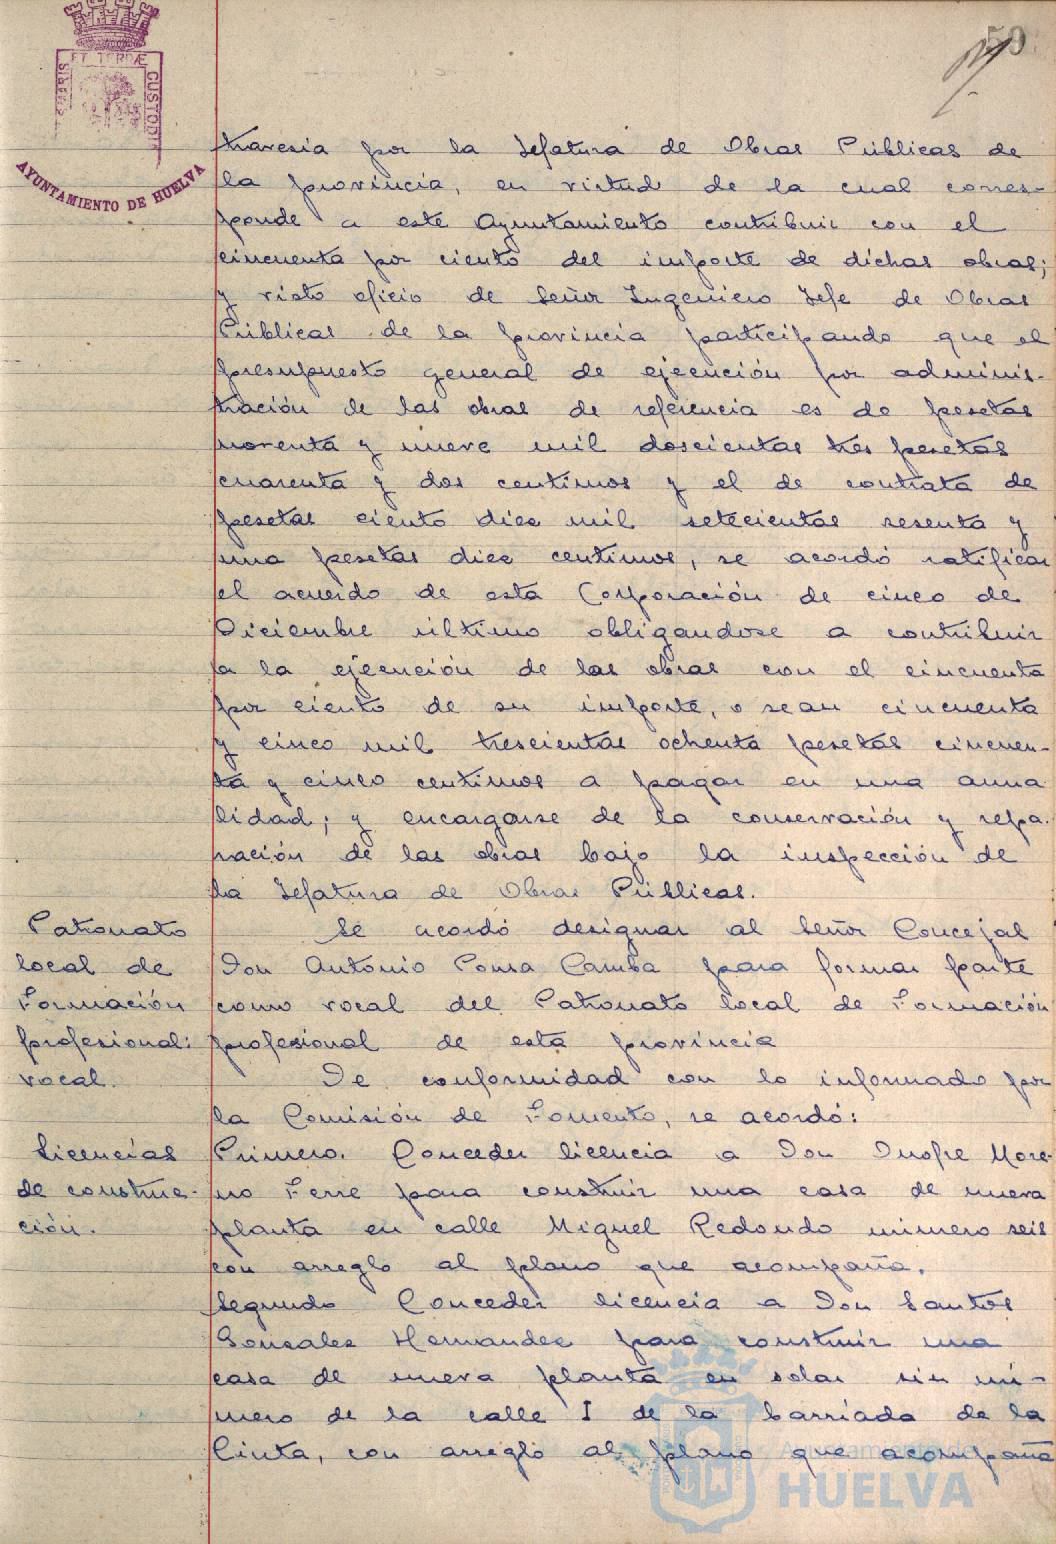 59
ET TERRÆ
CUSTODIA
AYUNTAMIENTO DE HUELVA
travesia por la Jefatura de Obras Públicas de
la provincia, en virtud de la cual corres-
ponde a este Ayuntamiento contribuir con el
cincuenta por ciento del importe de dichas obras;
y visto oficio de Señor Ingeniero Jefe de Obras
Públicas de la provincia participando que el
presupuesto general de ejecución por adminis-
tración de las obras de referencia es de pesetas
noventa y nueve mil doscientas tres pesetas
cuarenta y dos centimos y el de contrata de
pesetas ciento diez mil setecientas sesenta y
una pesetas diez centimos, se acordó ratificar
el acuerdo de esta Corporación de cinco de
Diciembre último obligandose a contribuir
a la ejecución de las obras con el cincuenta
por ciento de su importe, o sean cincuenta
y cinco mil trescientas ochenta pesetas cincuen-
ta y cinco centimos a pagar en una anua
lidad; y encargarse de la conservación y repa-
ración de las obras bajo la inspección de
la Jefatura de Obras Públicas.
Patronato
local de
Formación
profesional:
vocal.
Se acordó designar al Señor Concejal
Don Antonio Camba para formar parte
como vocal del Patronato local de Formación
profesional de esta provincia
De conformidad con lo informado por
la Comisión de Fomento, se acordó:
Licencias
de construc-
ción.
Primero. Conceder licencia a Don Onofre More-
no Ferre para construir una casa de nueva
planta en calle Miguel Redondo número seis
con arreglo al plano que acompaña.
Segundo Conceder licencia a Don Santos
Gonzalez Hernandez para construir una
casa de nueva planta en solar sin nú-
mero de la calle I de la barriada de la
Cinta, con arreglo al plano que acompaña
Ayuntamiento de
HUELVA